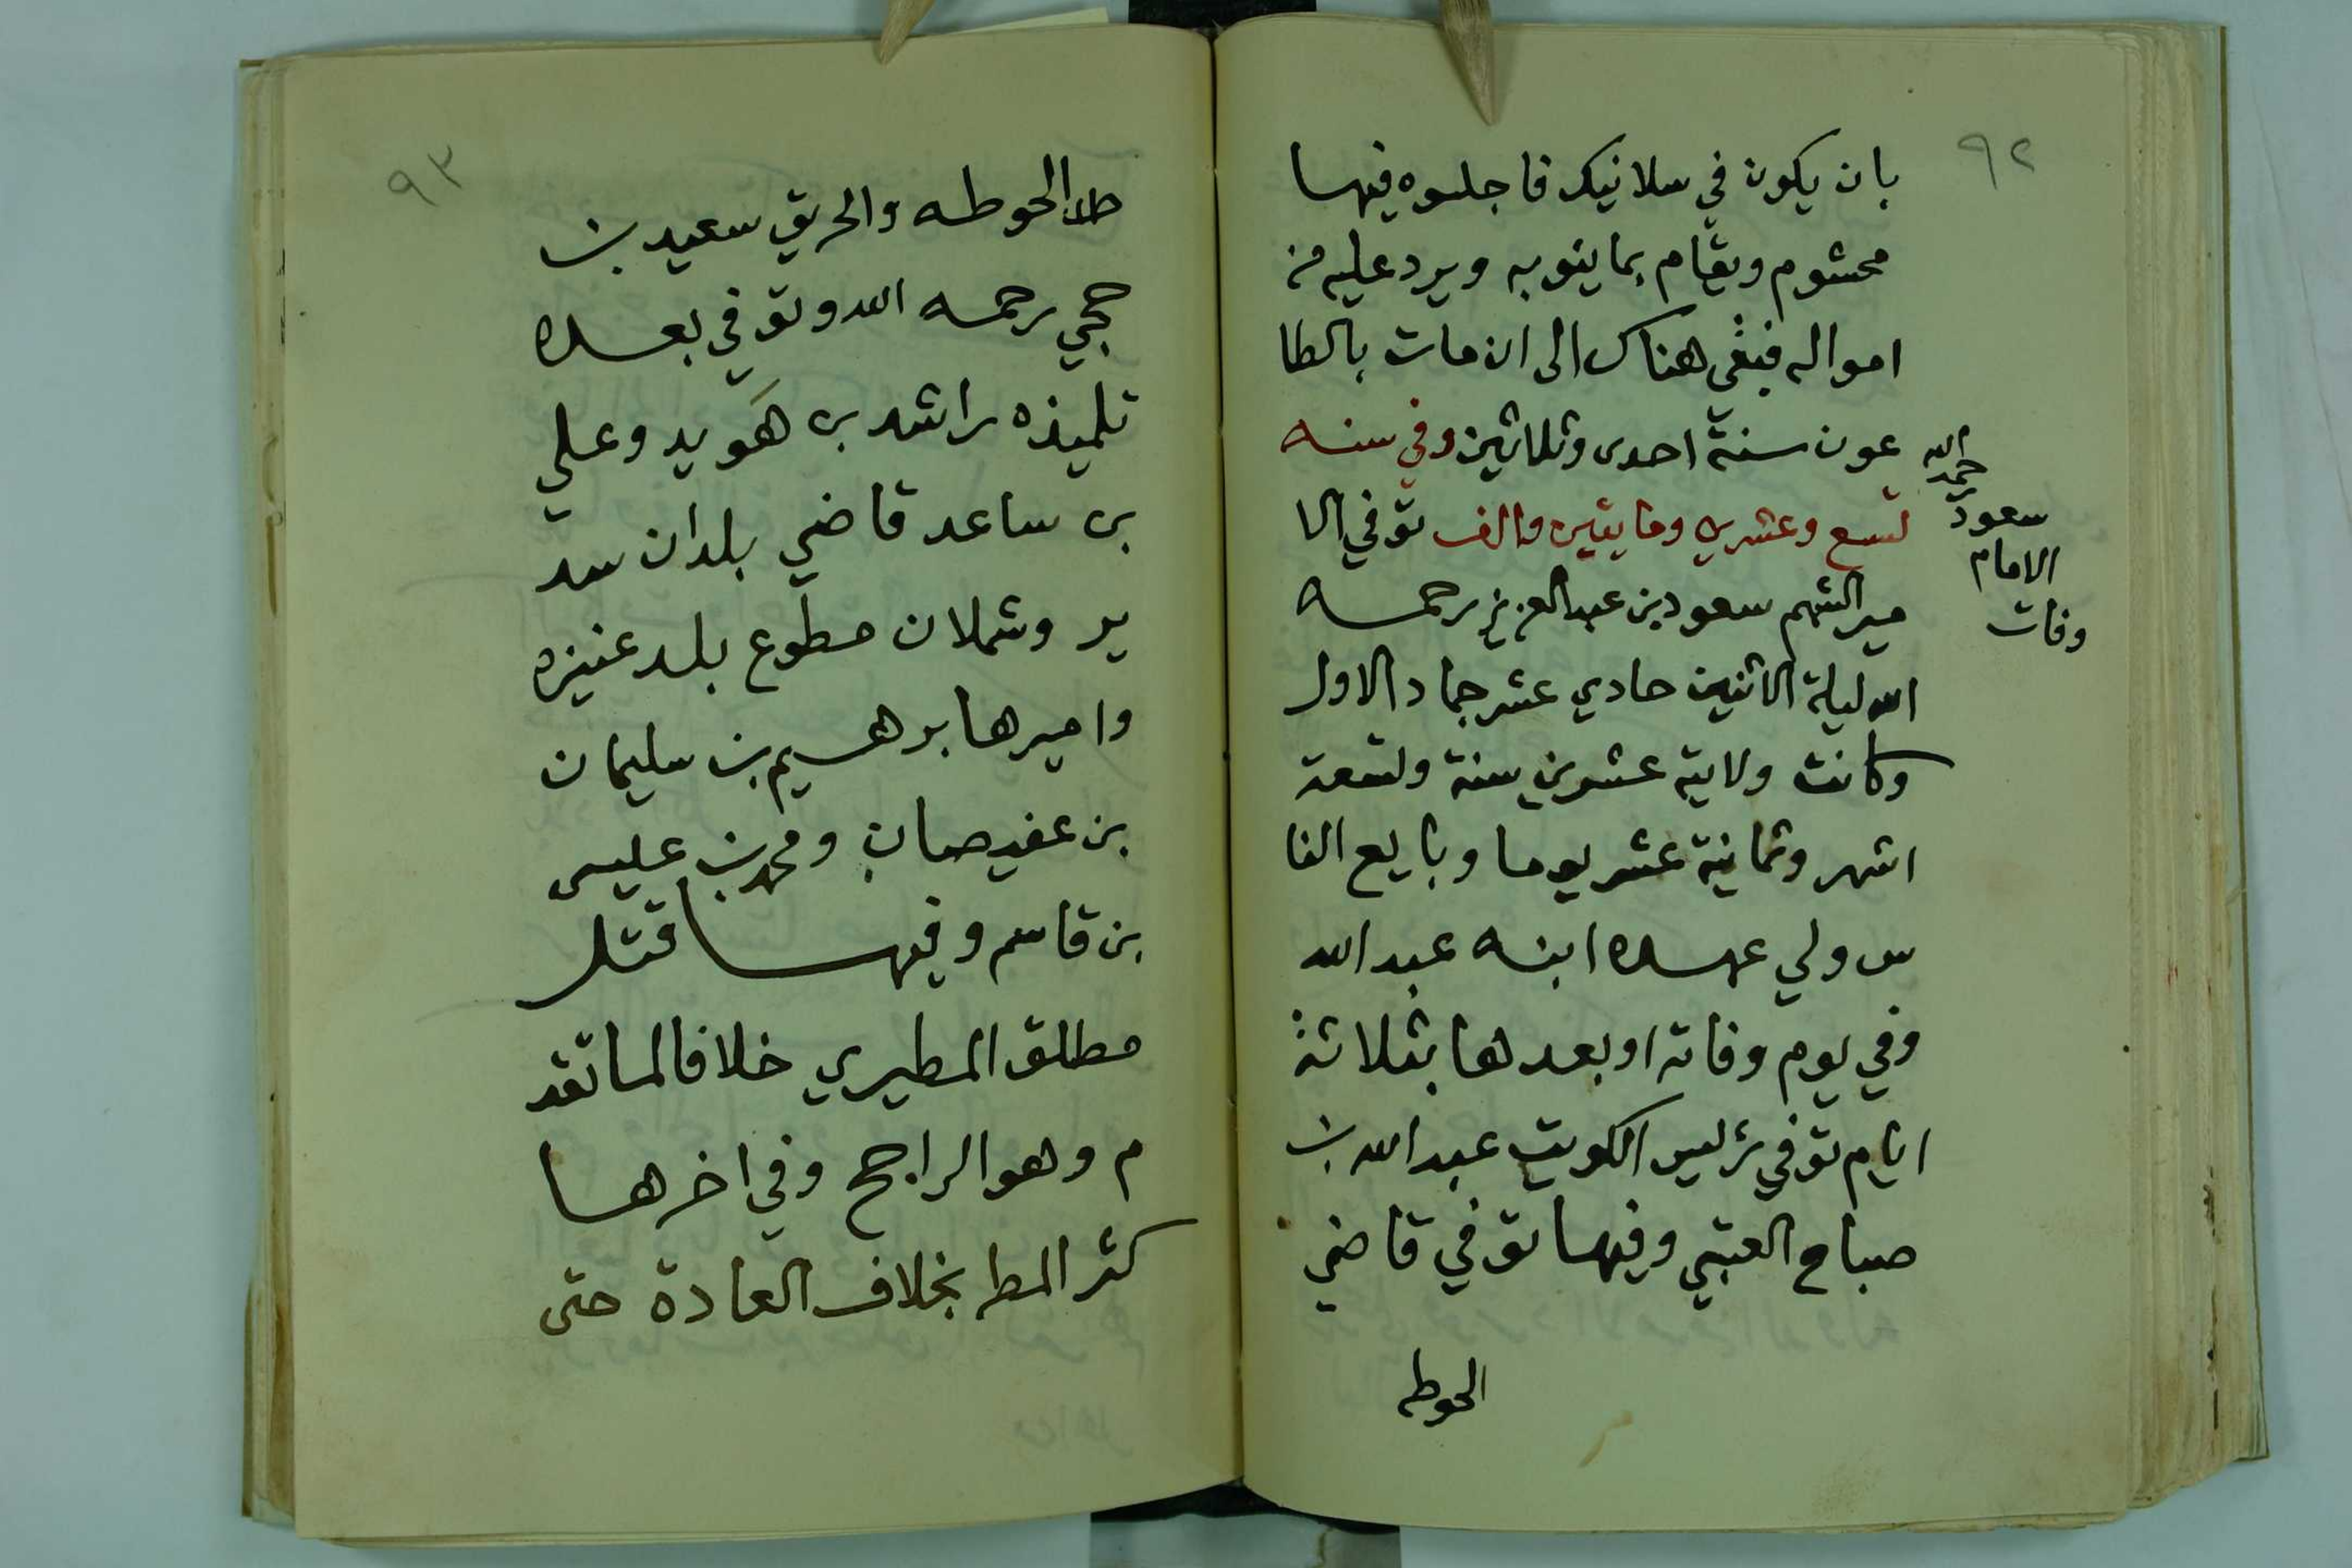 ٩٢
بان يكون في سلانيك فاجلسوه فيها
محشوم ويقام بما ينوبه ويرد عليه من
امواله فبقي هناك الى ان مات بالطا
عون سنة احدى وثلاثين وفي سنه
تسع وعشرين ومايتين والف توفي الا
مير الشهم سعود بن عبدالعزيز رحمه
الله ليلة الاثنين حادي عشر جماد الاول
وكانت ولايته عشرين سنة وتسعة
اشهر وثمانية عشر يوما وبايع النا
س ولي عهده ابنه عبدالله
وفي يوم وفاته او بعدها بثلاثة
ايام توفي رئيس الكويت عبدالله بن
صباح العتبي وفيها توفي قاضي
الحوطه
وفات
الامام
سعود
رحمه الله
٩٣
الحوطه والحريق سعيد بن
حجي رحمه الله وتوفي بعده
تلميذه راشد بن هَويد وعلي
بن ساعد قاضي بلدان سد
ير وشملان مطوع بلد عنيزه
واميرها برهيم بن سليمان
بن عفيصان ومحمد بن عليسى
بن قاسم وفيها قتل
مطلق المطيري خلافا لما تقد
م وهو الراجح وفي اخرها
كثر المطر بخلاف العادة حتى